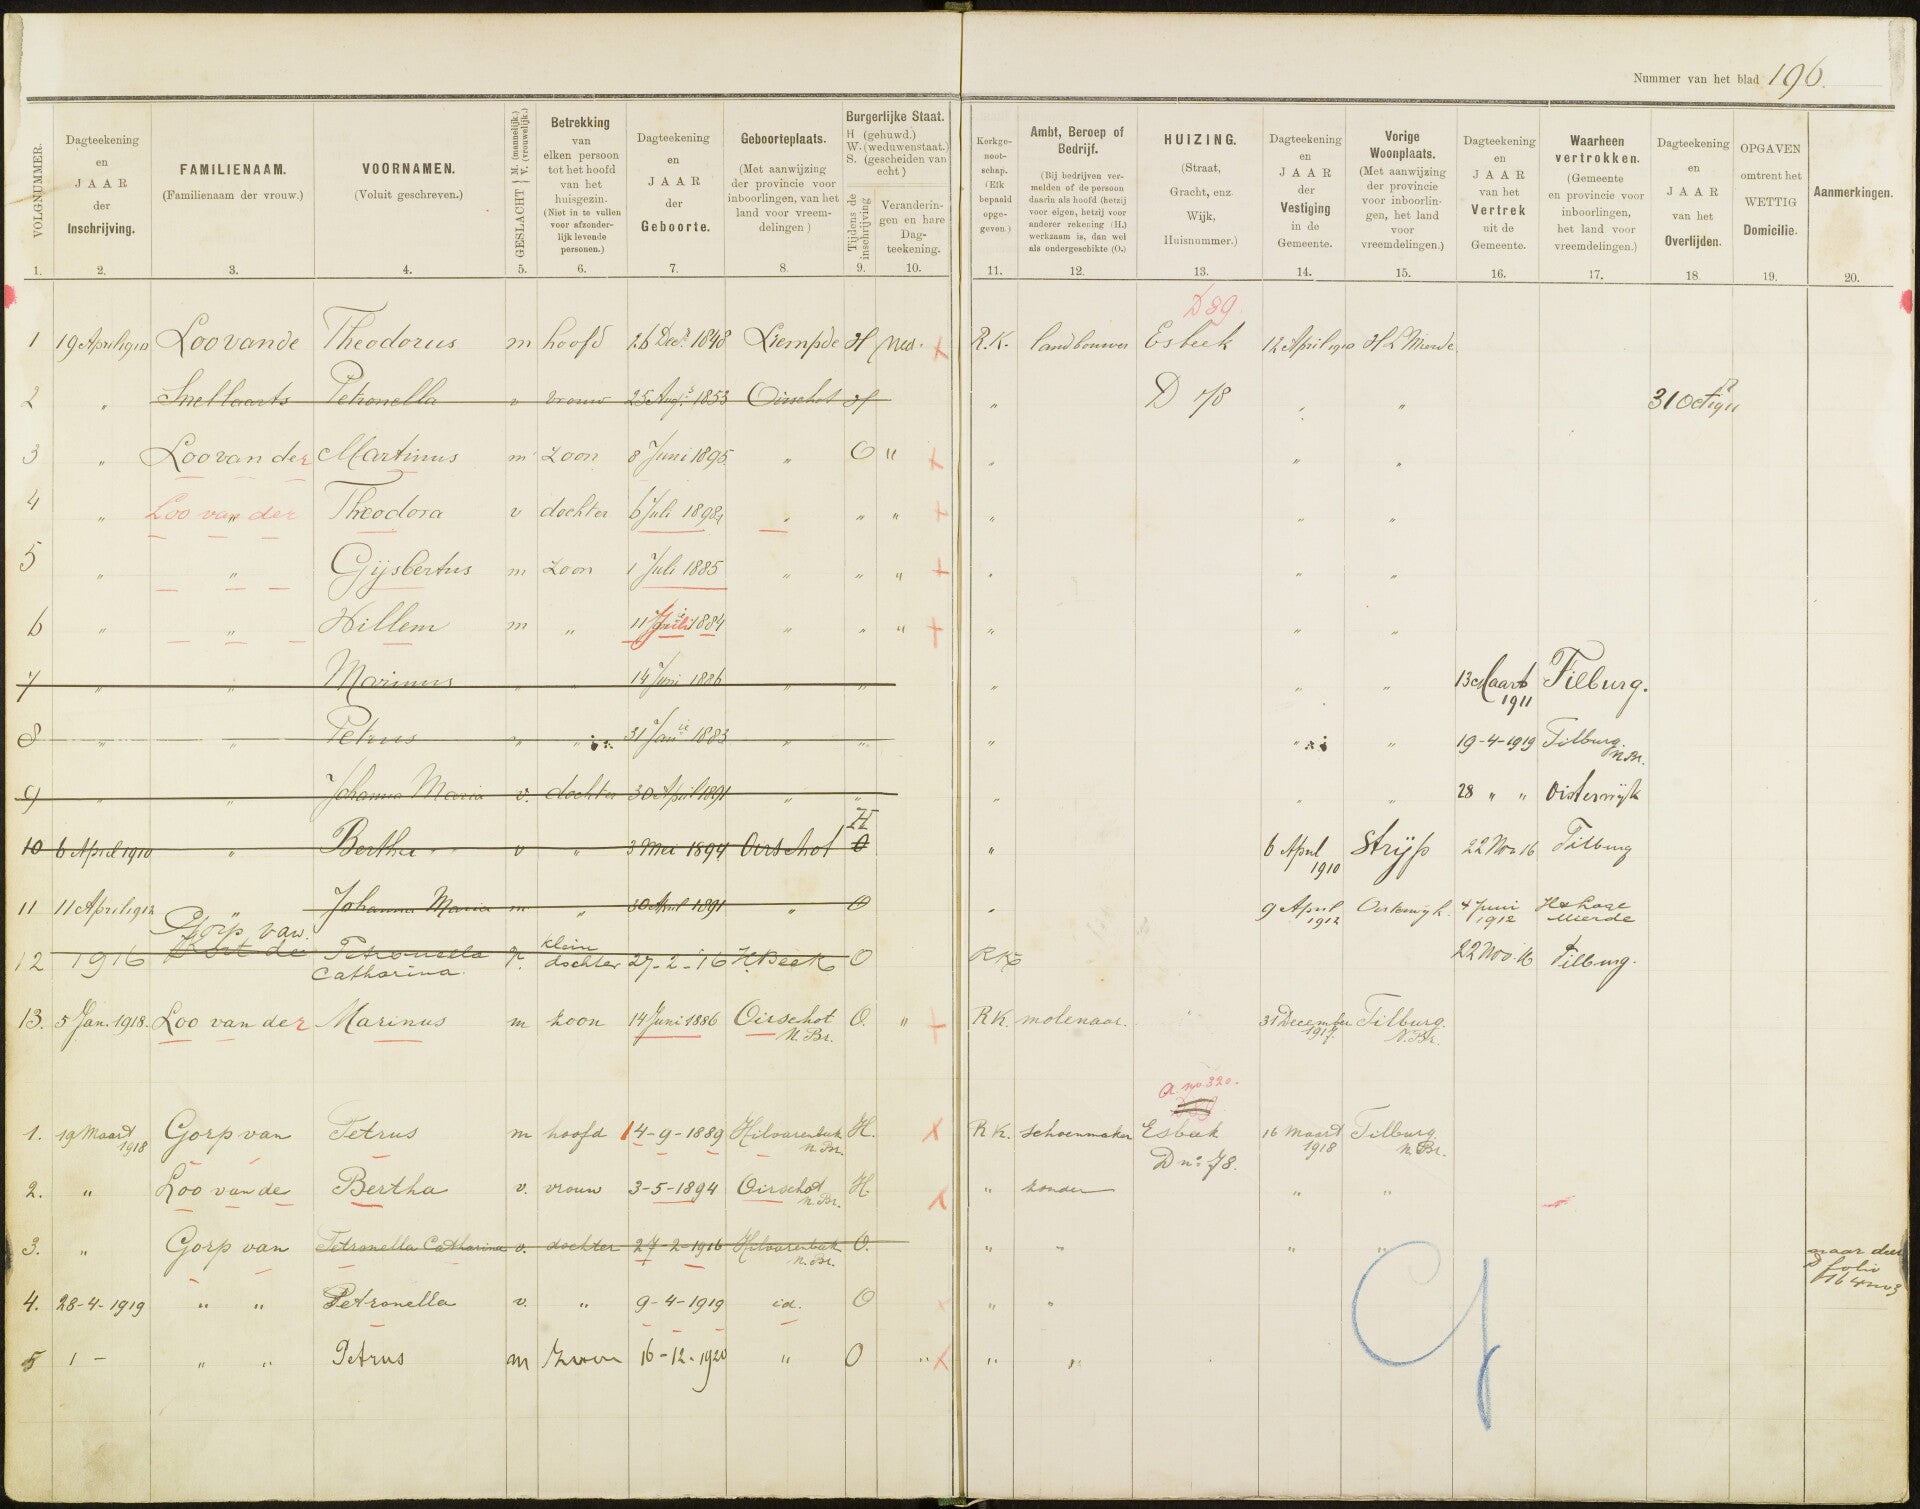 Nummer van het blad 196.
VOLGNUMMER.
Dagteekening en JAAR der Inschrijving.
FAMILIENAAM. (Familienaam der vrouw.)
VOORNAMEN. (Voluit geschreven.)
GESLACHT M. (mannelijk.) V. (vrouwelijk.)
Betrekking van elken persoon tot het hoofd van het huisgezin. (Niet in te vullen voor afzonderlijk levende personen.)
Dagteekening en JAAR der Geboorte.
Geboorteplaats. (Met aanwijzing der provincie voor inboorlingen, van het land voor vreemdelingen)
Burgerlijke Staat. H (gehuwd.) W. (weduwenstaat.) S. (gescheiden van echt)
Tijdens de inschrijving
Veranderingen en hare Dagteekening.
Kerkgenootschap. (Elk bepaald opgegeven.)
Ambt, Beroep of Bedrijf. (Bij bedrijven vermelden of de persoon daarin als hoofd (hetzij voor eigen, hetzij voor anderer rekening (H.) werkzaam is, dan wel als ondergeschikte (O.)
HUIZING. (Straat, Gracht, enz. Wijk, Huisnummer.)
Dagteekening en JAAR der Vestiging in de Gemeente.
Vorige Woonplaats. (Met aanwijzing der provincie voor inboorlingen, het land voor vreemdelingen.)
Dagteekening en JAAR van het Vertrek uit de Gemeente.
Waarheen vertrokken. (Gemeente en provincie voor inboorlingen, het land voor vreemdelingen.)
Dagteekening en JAAR van het Overlijden.
OPGAVEN omtrent het WETTIG Domicilie.
Aanmerkingen.
1. 2. 3. 4. 5. 6. 7. 8. 9. 10. 11. 12. 13. 14. 15. 16. 17. 18. 19. 20.
D 89
1 19 April 1910 Loo van de Theodorus m hoofd 26 Dec. 1848 Liempde H Ned. R.K. landbouwer Esbeek 12 April 1910 H L Mierde
2 " Snellaarts Petronella v vrouw 25 Aug. 1853 Oirschot H " D 78 " " 31 Oct 1911
3 " Loo van der Martinus m zoon 8 Juni 1895 " O " " " "
4 " Loo van der Theodora v dochter 6 Juli 1898 " " " " " "
5 " " Gijsbertus m zoon 1 Juli 1885 " " " " " "
6 " " Willem m " 11 Juli 1884 " " " " " "
7 " " Marinus " " 14 Juni 1886 " " " " " 13 Maart 1911 Tilburg.
8 " " Petrus " " 31 Jan 1883 " " " " " 19-4-1919 Tilburg N.Br.
9 " " Johanna Maria v. dochter 30 April 1891 " " " " " 28 " " Oisterwijk
H
10 6 April 1910 " Bertha v " 3 Mei 1894 Oirschot O " 6 April 1910 Strijp 22 Nov 16 Tilburg
11 11 April 1912 " Johanna Maria m " 30 April 1891 " O " 9 April 1912 Oisterwijk. 4 Juni 1912 H & Lage Mierde
Gorp van
12 1916 Petronella Catharina v. klein dochter 27-2-16 H. Beek O RK 22 Nov. 16 Tilburg.
13. 5 Jan. 1918. Loo van der Marinus m zoon 14 Juni 1886 Oirschot N. Br. O. " RK molenaar. " 31 December 1917. Tilburg. N.Br.
A. no 320.
1. 19 Maart 1918 Gorp van Petrus m hoofd 14-9-1889 Hilvarenbeek N. Br. H. RK. schoenmaker Esbeek D no. 78. 16 Maart 1918 Tilburg. N. Br.
2. " Loo van de Bertha v. vrouw 3-5-1894 Oirschot N. Br. H " zonder " "
3. " Gorp van Petronella Catharina v. dochter 27-2-1916 Hilvarenbeek N. Br. O. " " " " naar deel D folio
4. 28-4-1919 " " Petronella v. " 9-4-1919 id. O " "
5 1 - " " Petrus m zoon 16-12-1920 " O " " "